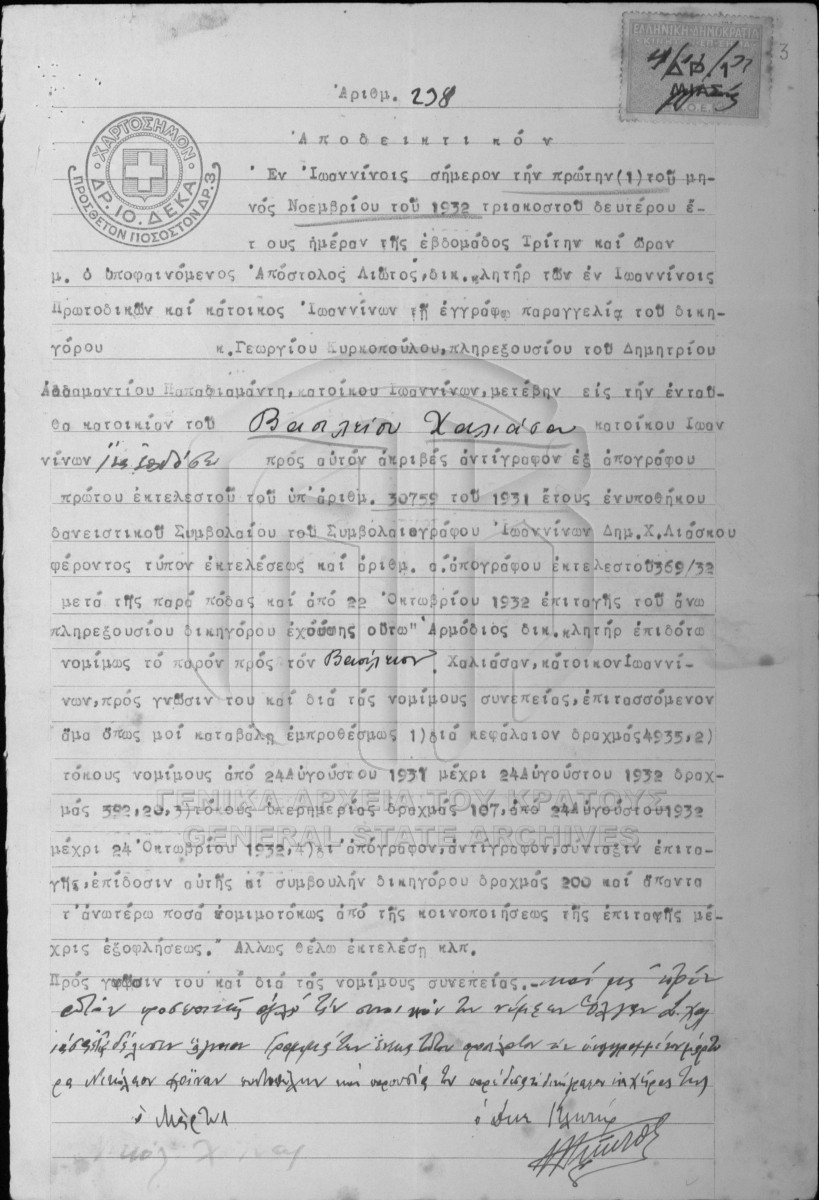 ΕΛΛΗΝΙΚΗ ΔΗΜΟΚΡΑΤΙΑ
ΔΡ. 1
ΜΙΑΣ
3
Ἀριθμ. 298
ΧΑΡΤΟΣΗΜΟΝ
ΔΡ. 10. ΔΕΚΑ
ΠΡΟΣΘΕΤΟΝ ΠΟΣΟΣΤΟΝ ΔΡ. 3
Ἀποδεικτικόν
Ἐν Ἰωαννίνοις σήμερον τήν πρώτην(1)τοῦ μη-
νός Νοεμβρίου τοῦ 1932 τριακοστοῦ δευτέρου ἔ-
τους ἡμέραν τῆς ἑβδομάδος Τρίτην καί ὥραν
μ. ὁ ὑποφαινόμενος Ἀπόστολος Λιῶτος,δικ.κλητήρ τῶν ἐν Ἰωαννίνοις
Πρωτοδικῶν καί κάτοικος Ἰωαννίνων τῇ ἐγγράφῳ παραγγελίᾳ τοῦ δικη-
γόρου κ.Γεωργίου Κυρκοπούλου,πληρεξουσίου τοῦ Δημητρίου
Ἀδαμαντίου Παπαδιαμάντη,κατοίκου Ἰωαννίνων,μετέβην εἰς τήν ἐνταῦ-
θα κατοικίαν τοῦ Βασιλείου Χαλιάσου κατοίκου Ἰωαν
νίνων ἵνα ἐπιδόσω πρός αὐτόν ἀκριβές ἀντίγραφον ἐξ ἀπογράφου
πρώτου ἐκτελεστοῦ τοῦ ὑπ'ἀριθμ. 30759 τοῦ 1931 ἔτους ἐνυποθήκου
δανειστικοῦ Συμβολαίου τοῦ Συμβολαιογράφου Ἰωαννίνων Δημ.Χ.Λιάσκου
φέροντος τύπον ἐκτελέσεως καί ἀριθμ. ἀ.ἀπογράφου ἐκτελεστοῦ369/32
μετά τῆς παρά πόδας καί ἀπό 22 Ὀκτωβρίου 1932 ἐπιταγῆς τοῦ ἄνω
πληρεξουσίου δικηγόρου ἐχούσης οὕτω"Ἁρμόδιος δικ.κλητήρ ἐπιδότω
νομίμως τό παρόν πρός τόν Βασίλειον Χαλιάσαν,κάτοικονἸωαννί-
νων,πρός γνῶσιν του καί διά τάς νομίμους συνεπείας,ἐπιτασσόμενον
ἅμα ὅπως μοί καταβάλῃ ἐμπροθέσμως 1)διά κεφάλαιον δραχμάς4935,2)
τόκους νομίμους ἀπό 24Αὐγούστου 1931 μέχρι 24Αὐγούστου 1932 δραχ-
μάς 592,20,3)τόκους ὑπερημερίας δραχμάς 107,ἀπό 24Αὐγούστου1932
μέχρι 24 Ὀκτωβρίου 1932,4)δι ἀπόγραφον,ἀντίγραφον,σύνταξιν ἐπιτα-
γῆς,ἐπίδοσιν αὐτῆς καί συμβουλήν δικηγόρου δραχμάς 200 καί ἅπαντα
τ'ἀνωτέρω ποσά νομιμοτόκως ἀπό τῆς κοινοποιήσεως τῆς ἐπιταγῆς μέ-
χρις ἐξοφλήσεως." Ἄλλως θέλω ἐκτελέσῃ κλπ.
Πρός γνῶσιν του καί διά τάς νομίμους συνεπείας.-
ὁ Μάρτυς
ὁ Δικ Κλητήρ
ΓΕΝΙΚΑ ΑΡΧΕΙΑ ΤΟΥ ΚΡΑΤΟΥΣ
GENERAL STATE ARCHIVES